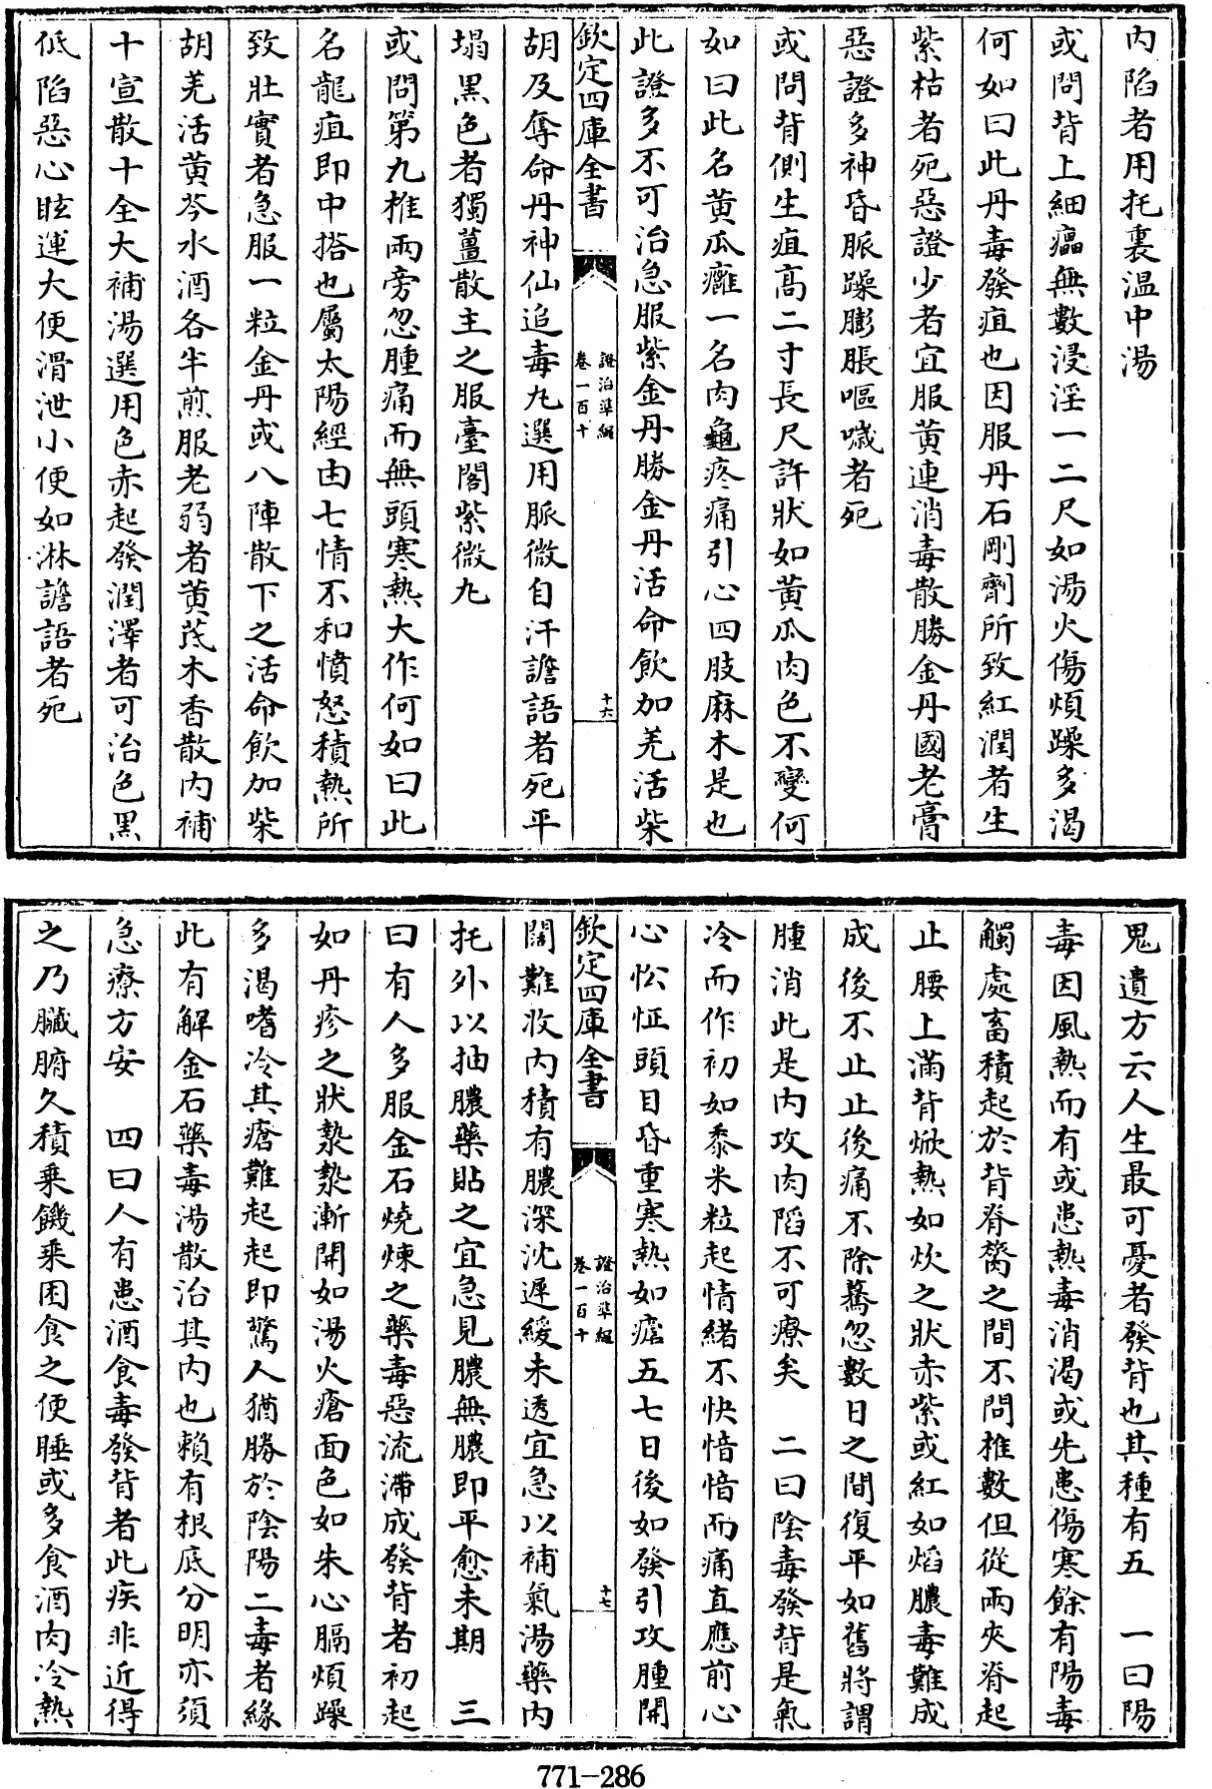 内陷者用托裏温中湯
或問背上細㿔無數浸淫一二尺如湯火傷煩躁多渴
何如曰此丹毒發疽也因服丹石剛劑所致紅潤者生
紫枯者死惡證少者宜服黄連消毒散勝金丹國老膏
惡證多神昏脈躁膨脹嘔噦者死
或問背側生疽高二寸長尺許狀如黄瓜肉色不變何
如曰此名黄瓜癰一名肉龜疼痛引心四肢麻木是也
此證多不可治急服紫金丹勝金丹活命飲加羌活柴
欽定四庫全書
證治準繩
卷一百十
十六
胡及奪命丹神仙追毒丸選用脈微自汗譫語者死平
塌黑色者獨薑散主之服臺閣紫微丸
或問第九椎兩旁忽腫痛而無頭寒熱大作何如曰此
名龍疽即中搭也屬太陽經由七情不和憤怒積熱所
致壯實者急服一粒金丹或八陣散下之活命飲加柴
胡羌活黄芩水酒各半煎服老弱者黄芪木香散内補
十宣散十全大補湯選用色赤起發潤澤者可治色黑
低陷惡心眩運大便滑泄小便如淋譫語者死
鬼遺方云人生最可憂者發背也其種有五　一曰陽
毒因風熱而有或患熱毒消渴或先患傷寒餘有陽毒
觸處畜積起於背脊膂之間不問椎數但從兩夾脊起
止腰上滿背焮熱如炊之狀赤紫或紅如焰膿毒難成
成後不止止後痛不除驀忽數日之間復平如舊將謂
腫消此是内攻肉陷不可療矣　二曰陰毒發背是氣
冷而作初如黍米粒起情緒不快愔愔而痛直應前心
心忪怔頭目昏重寒熱如瘧五七日後如發引攻腫開
欽定四庫全書
證治準繩
卷一百十
十七
闊難收内積有膿深沈遲緩未透宜急以補氣湯藥内
托外以抽膿藥貼之宜急見膿無膿即平愈未期　三
曰有人多服金石燒煉之藥毒惡流滯成發背者初起
如丹疹之狀漐漐漸開如湯火瘡面色如朱心膈煩躁
多渴嗜冷其瘡難起起即驚人猶勝於陰陽二毒者緣
此有解金石藥毒湯散治其内也賴有根底分明亦須
急療方安　四曰人有患酒食毒發背者此疾非近得
之乃臟腑久積乗饑乗困食之便睡或多食酒肉冷熱
771-286